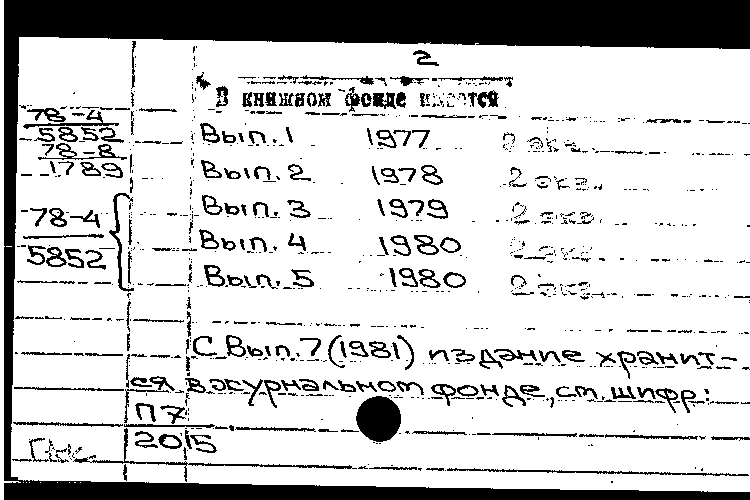 2
В книжном фонде имеется
78-4
5852
78-8
1789
Вып. 1 1977 2 экз.
Вып. 2 1978 2 экз.
Вып. 3 1979 2 экз.
78-4
5852
Вып. 4 1980 2 экз.
Вып. 5 1980 2 экз.
С Вып. 7 (1981) издание хранит-
ся в журнальном фонде, см. шифр:
П7
2015